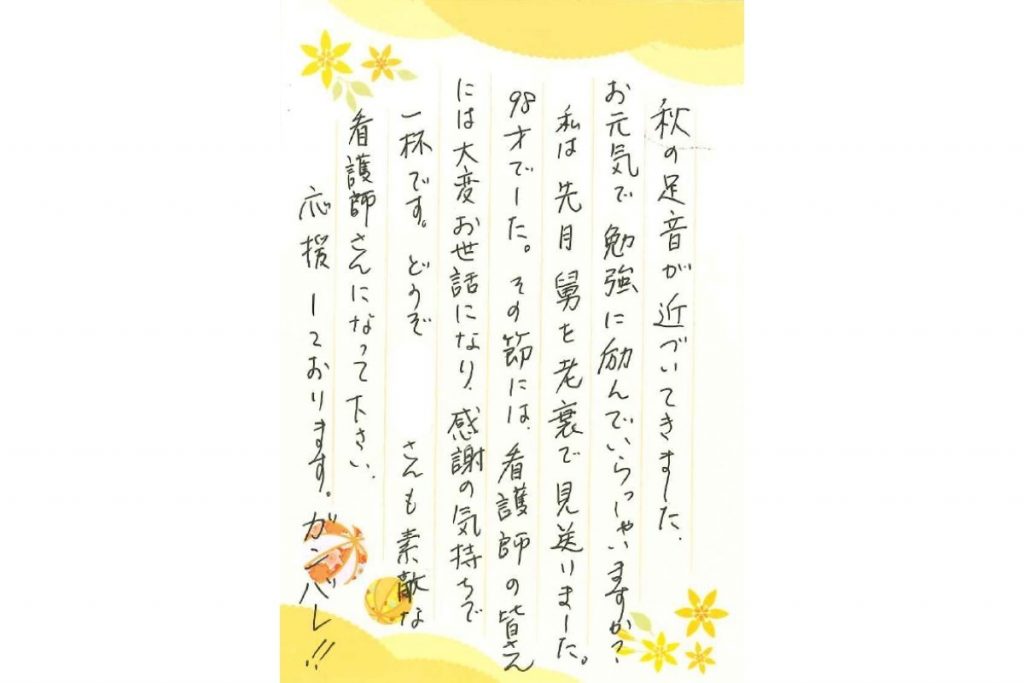 秋の足音が近づいてきました.
お元気で勉強に励んでいらっしゃいますか?
私は先月舅を老衰で見送りました。
98才でした。その節には、看護師の皆さん
には大変お世話になり、感謝の気持ちで
一杯です。どうぞ さんも素敵な
看護師さんになって下さい.
応援しております。ガンバレ!!